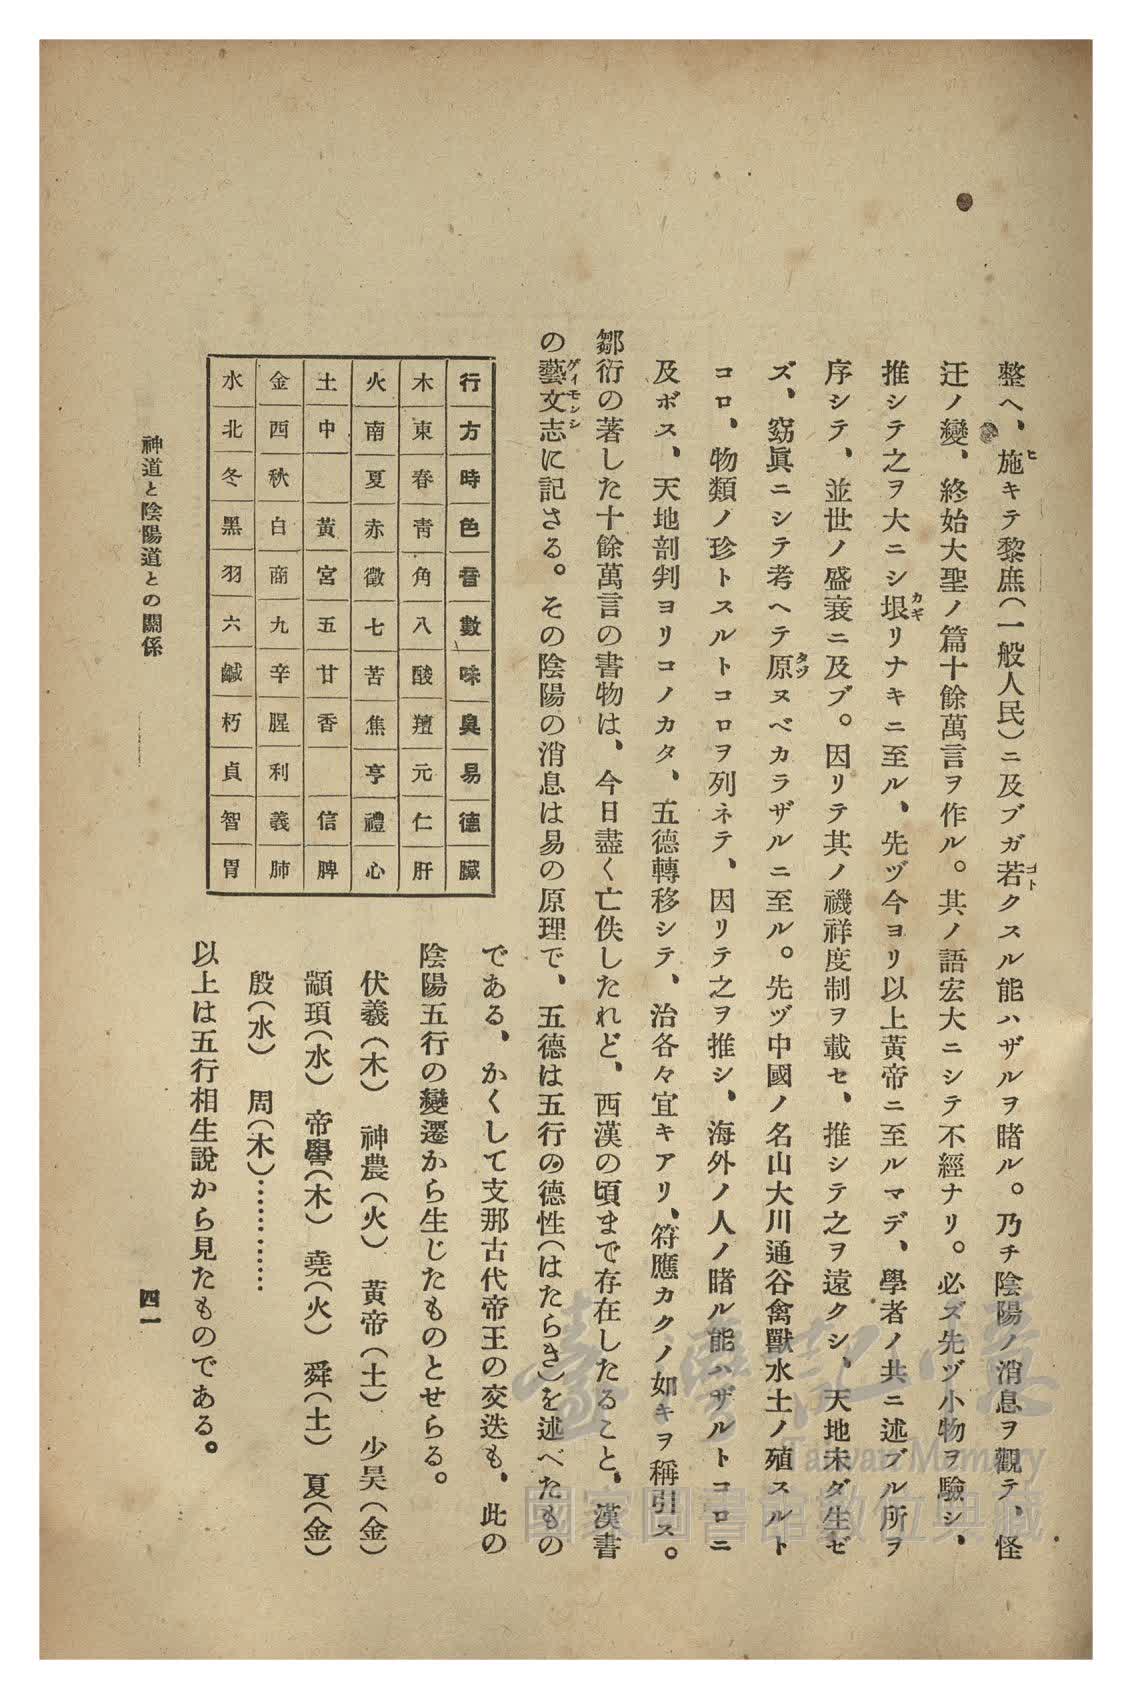 整ヘ、施キテ黎庶(一般人民)ニ及ブガ若クスル能ハザルヲ睹ル。乃チ陰陽ノ消息ヲ觀テ、怪
迂ノ變、終始大聖ノ篇十餘萬言ヲ作ル。其ノ語宏大ニシテ不經ナリ。必ズ先ヅ小物ヲ驗シ、
推シテ之ヲ大ニシ垠リナキニ至ル、先ヅ今ヨリ以上黃帝ニ至ルマデ、學者ノ共ニ述ブル所ヲ
序シテ、並世ノ盛衰ニ及ブ。因リテ其ノ禨祥度制ヲ載セ、推シテ之ヲ遠クシ、天地未ダ生ゼ
ズ、窈眞ニシテ考ヘテ原ヌベカラザルニ至ル。先ヅ中國ノ名山大川通谷禽獸水土ノ殖スルト
コロ、物類ノ珍トスルトコロヲ列ネテ、因リテ之ヲ推シ、海外ノ人ノ睹ル能ハザルトコロニ
及ボス、天地剖判ヨリコノカタ、五德轉移シテ、治各々宜キアリ、符應カクノ如キヲ稱引ス。
鄒衍の著した十餘萬言の書物は、今日盡く亡佚したれど、西漢の頃まで存在したること、漢書
の藝文志に記さる。その陰陽の消息は易の原理で、五德は五行の德性(はたらき)を述べたもの
である、かくして支那古代帝王の交迭も、此の
陰陽五行の變遷から生じたものとせらる。
伏羲(木) 神農(火) 黃帝(土) 少昊(金)
顓頊(水) 帝嚳(木) 堯(火) 舜(土) 夏(金)
殷(水) 周(木)…………
以上は五行相生說から見たものである。
行 方 時 色 音 數 味 臭 易 德 臟
木 東 春 靑 角 八 酸 羶 元 仁 肝
火 南 夏 赤 徵 七 苦 焦 亨 禮 心
土 中 黃 宮 五 甘 香 信 脾
金 西 秋 白 商 九 辛 腥 利 義 肺
水 北 冬 黑 羽 六 鹹 朽 貞 智 胃
神道と陰陽道との關係
四一
臺灣記憶
Taiwan Memory
國家圖書館數位典藏